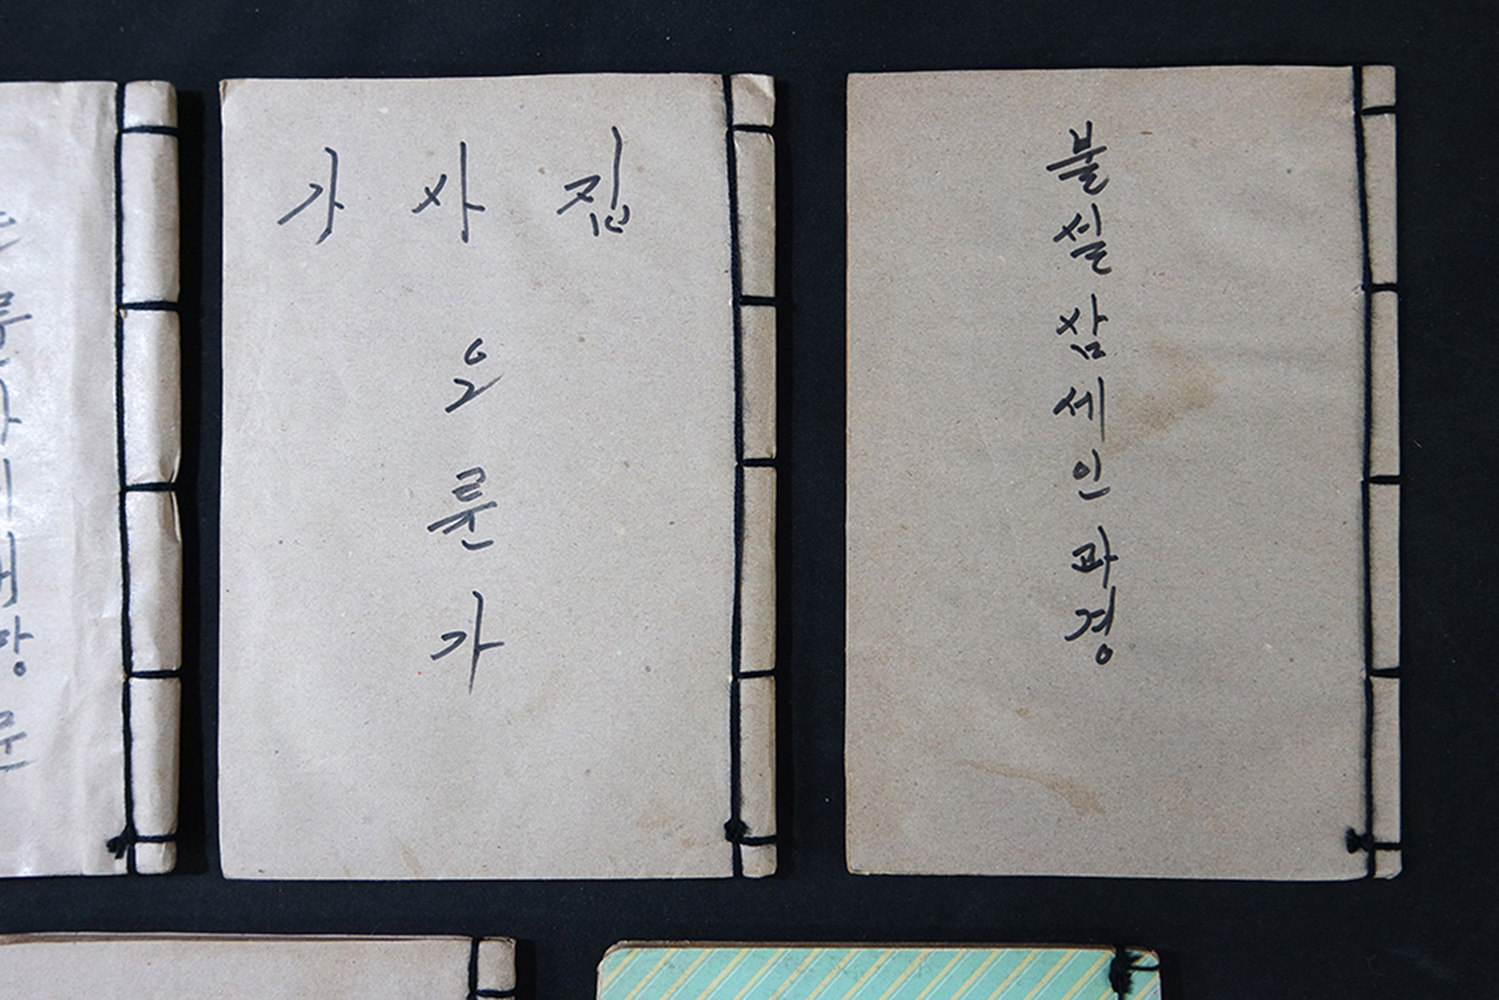 가 사 집
오 륜 가
불설삼세인과경